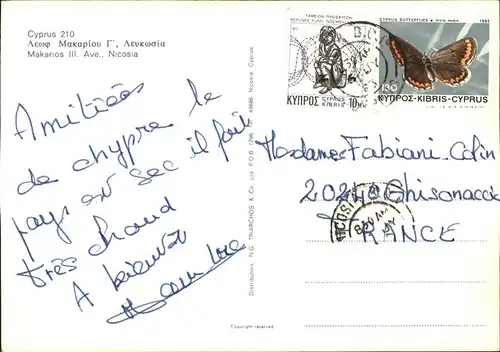 Cyprus 210
Λεωφ Μακαρίου Γ', Λευκωσία
Makarios III. Ave., Nicosia
Amitiées
de chypre le
pays où sec il fait
très chaud
A bientôt
Distributors N.G. TRIARCHOS & Co. Ltd. P.O.B. Nicosia, Cyprus
Copyright reserved
ΤΑΜΕΙΟΝ ΠΡΟΣΦΥΓΩΝ
REFUGEE FUND
ΚΥΠΡΟΣ CYPRUS KIBRIS 10M
CYPRUS BUTTERFLIES 1983
130
ΚΥΠΡΟΣ-KIBRIS-CYPRUS
Madame Fabiani Colin
20240 Ghisonaccia
FRANCE